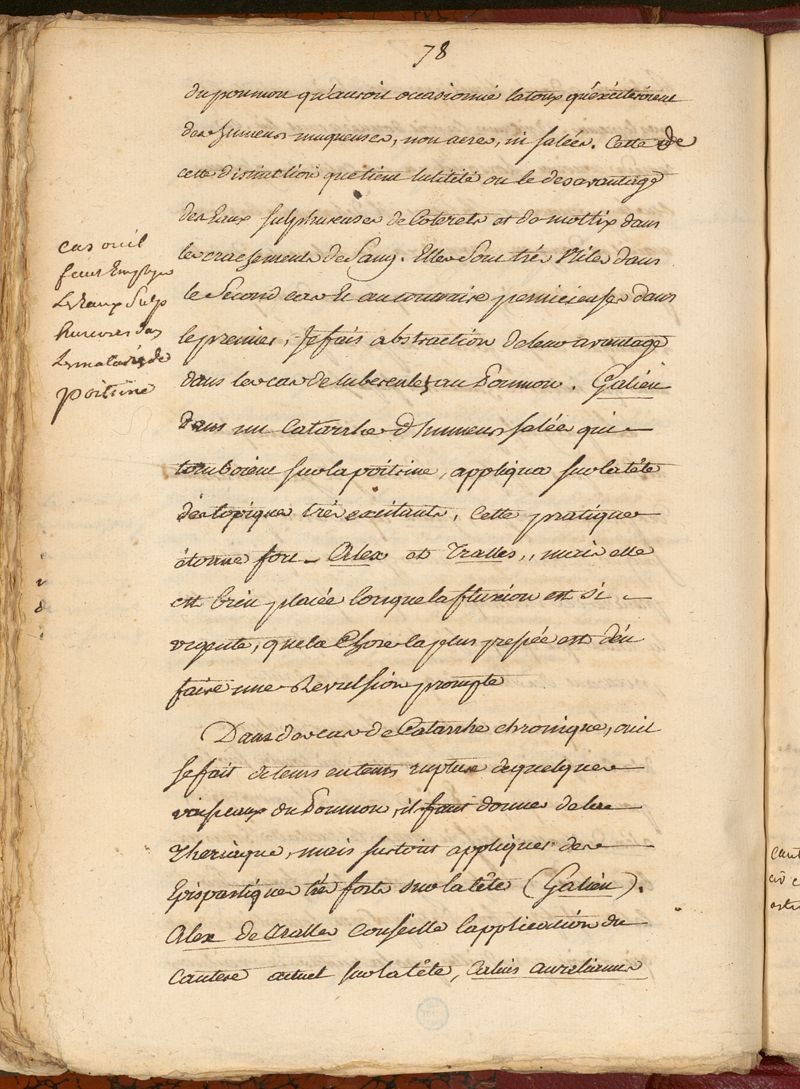 78
du poumon qu'auroit occasionné la toux qu'exciteroient
des humeurs muqueuses, non acres, ni salées. Cette de
cette distinction que tient lutilité ou le desavantage
des Eaux sulphureuses de Coterets et de mottix dans
les crachements de Sang. Elles Sont trés Utiles dans
le Second cas Et au contraire pernicieuses dans
le premier, Je fais abstraction de leur avantage
dans les cas de tubercules au Poumon. Galien
Dans un Catarrhe d'humeurs salées qui
tomboient sur la poitrine, appliqua sur la tête
des topiques trés excitants, Cette pratique
étonne fort Alex et Tralles, mais elle
est bien placée lorsque la fluxion est si
urgente, que la Chose la plus pressée est d'en
faire une Revulsion prompte
cas ou il
faut Employer
Les Eaux Sulp
hureuses dans
Les maladies de
poitrine
Dans des cas de Catarrhe chronique, ou il
se fait de tems en tems rupture de quelques
vaisseaux du Poumon, il faut donner de la
Theriaque, mais surtout appliquer des
Epispastiques trés forts sur la tête (Galien).
Alex de Tralles Conseille lapplication du
Cautere actuel sur la tête, Cælius aurelianus